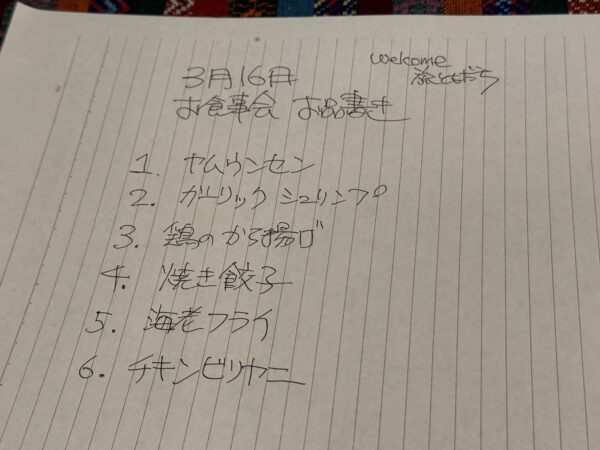 welcome
旅ともだち
3月16日
お食事会 お品書き
1. ヤムウンセン
2. ガーリック シュリンプ
3. 鶏のから揚げ
4. 焼き餃子
5. 海老フライ
6. チキンビリヤニ